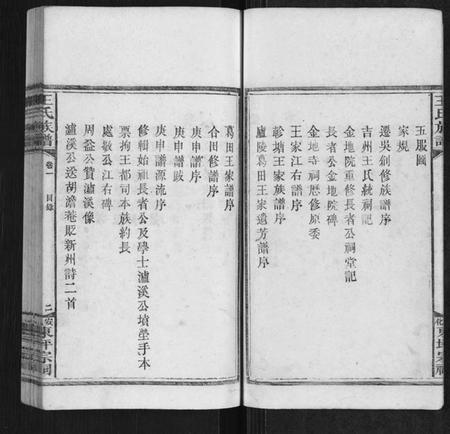 王氏族譜
化
五服圖
家規
遷吳劍修族譜序
吉州王氏統祠記
金地院重修長者公祠堂記
長者公金地院碑
金地寺祠曆修原委
王家江右譜序
軫塘王家族譜序
廬陵葛田王家遠芳譜序
葛田王家譜序
合田修譜序
庚申譜序
庚申譜跋
庚申譜源流序
修輯始祖長者公及學士瀘溪公墳塋手本
票拘王都司本族約長
處敬公江右碑
周益公贊瀘溪像
瀘溪公送胡澹菴貶新州詩二首
王氏族譜
卷一
目錄
二
安
東坪宗祠